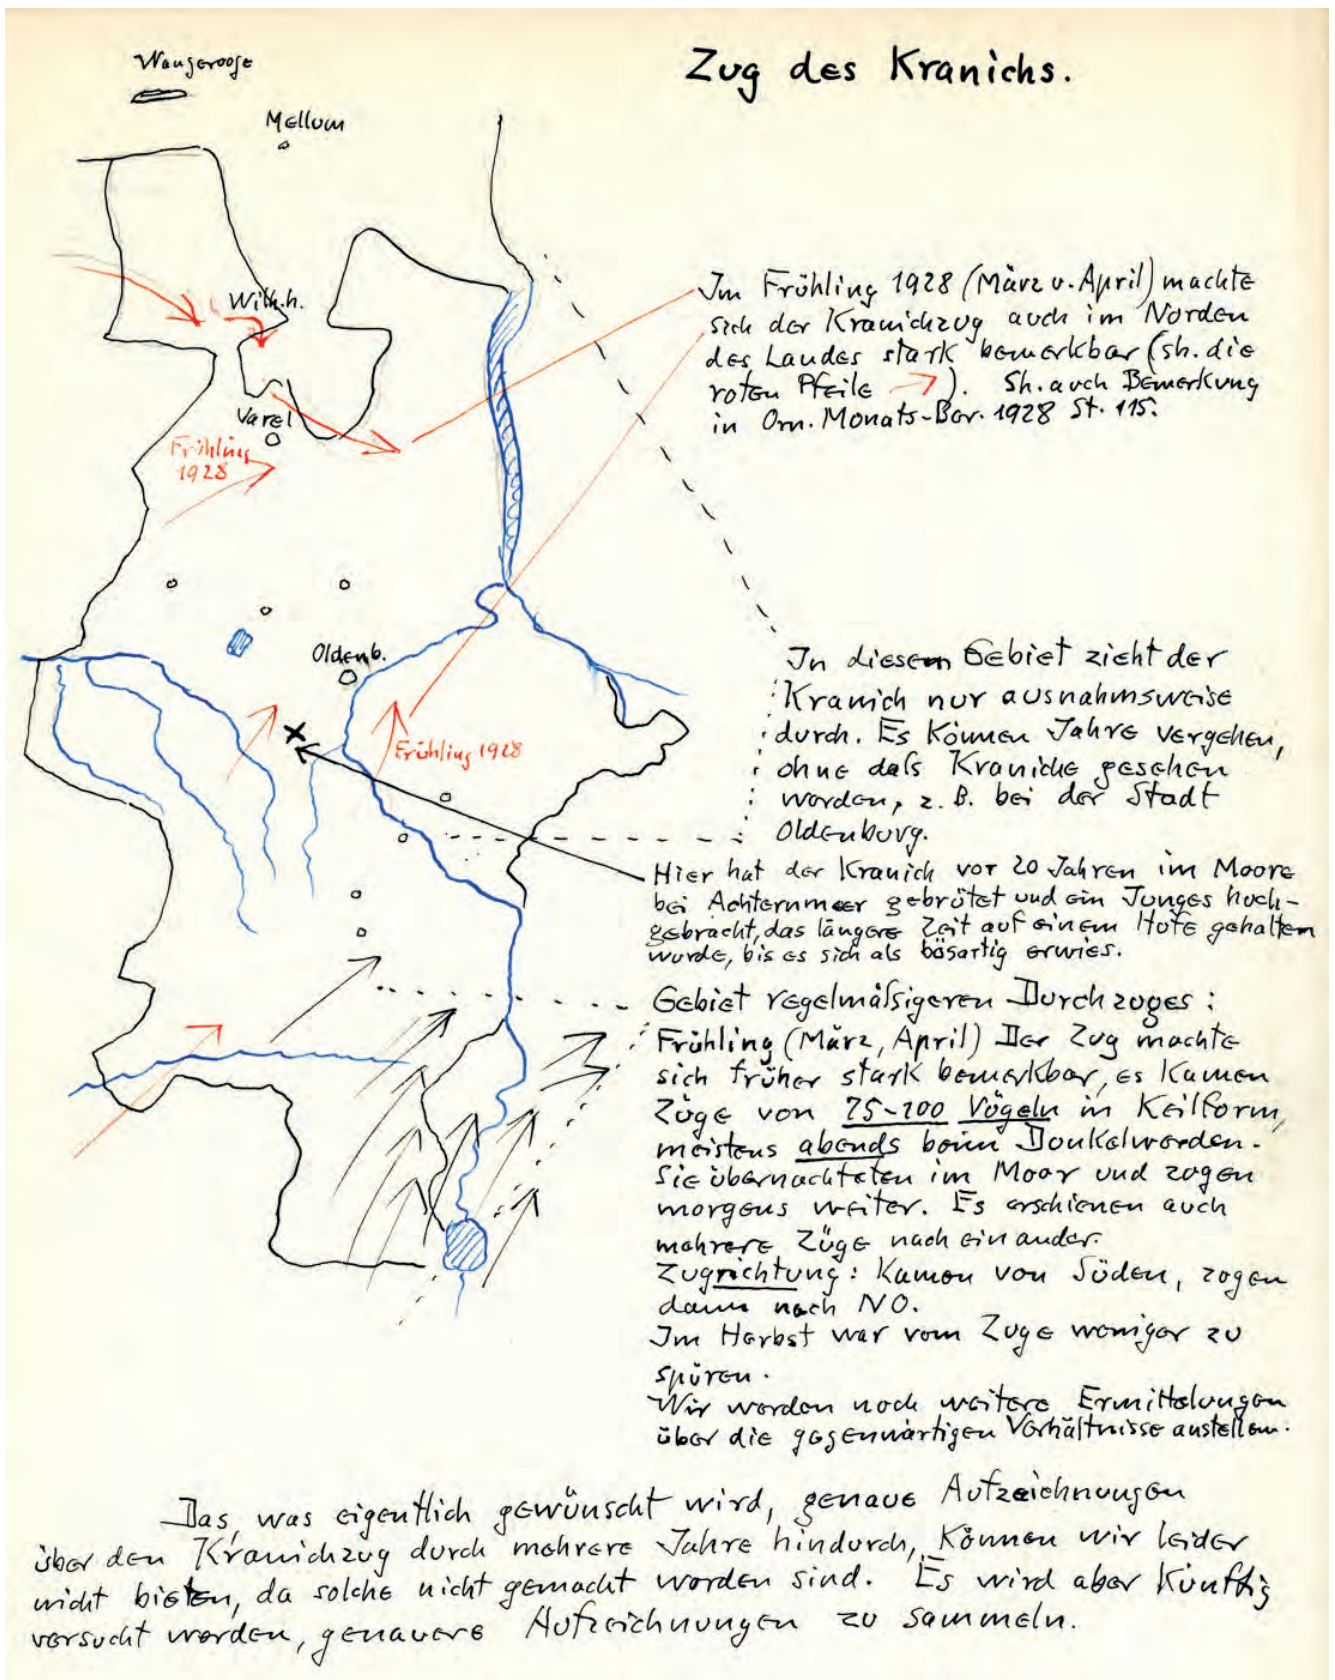 Zug des Kranichs.
Wangerooge
Mellum
Wilh.h.
Varel
Frühling
1928
Oldenb.
Frühling 1928
Im Frühling 1928 (März u. April) machte
sich der Kranichzug auch im Norden
des Landes stark bemerkbar (sh. die
roten Pfeile →). Sh. auch Bemerkung
in Orn. Monats-Ber. 1928 St. 115.
In diesem Gebiet zieht der
Kranich nur ausnahmsweise
durch. Es können Jahre vergehen,
ohne dals Kraniche gesehen
werden, z. B. bei der Stadt
Oldenburg.
Hier hat der Kranich vor 20 Jahren im Moore
bei Achternmeer gebrütet und ein Junges hoch-
gebracht, das längere Zeit auf einem Hofe gehalten
wurde, bis es sich als bösartig erwies.
Gebiet regelmässigeren Durchzuges:
Frühling (März, April) Der Zug machte
sich früher stark bemerkbar, es kamen
Züge von 75-100 Vögeln in Keilform,
meistens abends beim Dunkelwerden.
Sie übernachteten im Moor und zogen
morgens weiter. Es erschienen auch
mehrere Züge nach einander.
Zugrichtung: Kamen von Süden, zogen
dann nach NO.
Im Herbst war vom Zuge weniger zu
spüren.
Wir werden noch weitere Ermittelungen
über die gegenwärtigen Verhältnisse anstellen.
Das, was eigentlich gewünscht wird, genaue Aufzeichnungen
über den Kranichzug durch mehrere Jahre hindurch, können wir leider
nicht bieten, da solche nicht gemacht worden sind. Es wird aber künftig
versucht werden, genauere Aufzeichnungen zu sammeln.